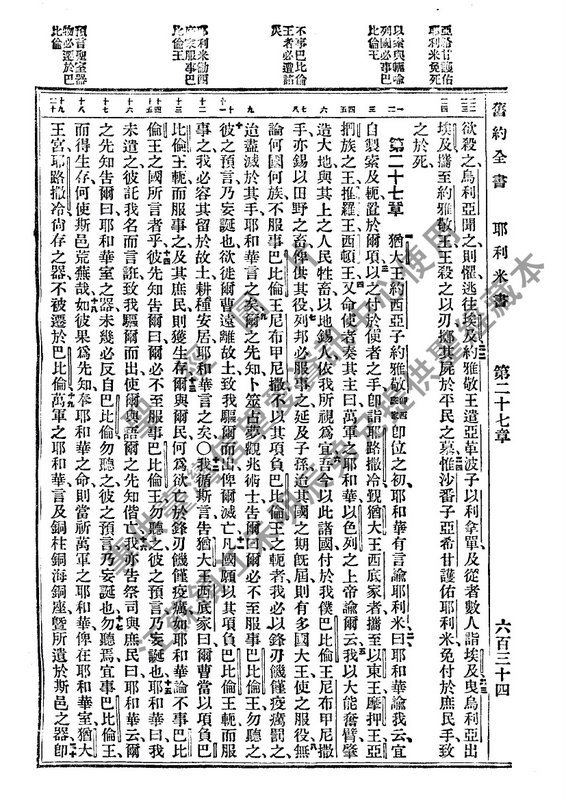 舊約全書　耶利米書　第二十七章　六百三十四
亞希甘護佑
耶利米免死
以索與軛喻
列國必事巴
比倫王
不事巴比倫
王者必遭諸
災
耶利米勸西
底家服事巴
比倫王
預言聖室器
物必遷於巴
比倫
欲殺之烏利亞聞之則懼逃往埃及約雅敬王遣亞革波子以利拿單及從者數人詣埃及曳烏利亞出
埃及攜至約雅敬王王殺之以刃擲其屍於平民之墓惟沙番子亞希甘護佑耶利米免付於庶民手致
之於死
第二十七章　猶大王約西亞子約雅敬即位之初耶和華有言諭耶利米曰耶和華諭我云宜
自製索及軛置於爾項以之付於使者之手即詣耶路撒冷覲猶大王西底家者攜至以東王摩押王亞
捫族之王推羅王西頓王又命使者奏其主曰萬軍之耶和華以色列之上帝諭爾云我以大能奮臂肇
造大地與其上之人民牲畜以地錫人依我所視為宜吾今以此諸國付於我僕巴比倫王尼布甲尼撒
手亦錫以田野之畜俾供其役列邦必服事之延及子孫迨其國之期既屆則有多國大王使之服役無
論何國何族不服事巴比倫王尼布甲尼撒不以其項負巴比倫王之軛者我必以鋒刃饑饉疫癘罰之
迨盡滅於其手耶和華言之矣爾之先知卜筮占夢觀兆術士告爾曰爾必不至服事巴比倫王勿聽之
彼之預言乃妄誕也欲徙爾曹遠離故土致我驅爾而出俾爾滅亡凡國願以其項負巴比倫王軛而服
事之我必容其留於故土耕種安居耶和華言之矣○我循斯言告猶大王西底家曰爾曹當以項負巴
比倫王軛而服事之及其庶民則獲生存爾與爾民何為欲亡於鋒刃饑饉疫癘如耶和華諭不事巴比
倫王之國所言者乎彼先知告爾曰爾必不至服事巴比倫王勿聽之彼之預言乃妄誕也耶和華曰我
未遣之彼託我名而言誑致我驅爾而出使爾與語爾之先知偕亡我亦告祭司與庶民曰耶和華云爾
之先知告爾曰耶和華室之器未幾必反自巴比倫勿聽之彼之預言乃妄誕也勿聽焉宜事巴比倫王
而得生存何使斯邑荒蕪哉如彼果為先知奉耶和華之命則當祈萬軍之耶和華俾在耶和華室猶大
王宮耶路撒冷尚存之器不被遷於巴比倫萬軍之耶和華言及銅柱銅海銅座暨所遺於斯邑之器即